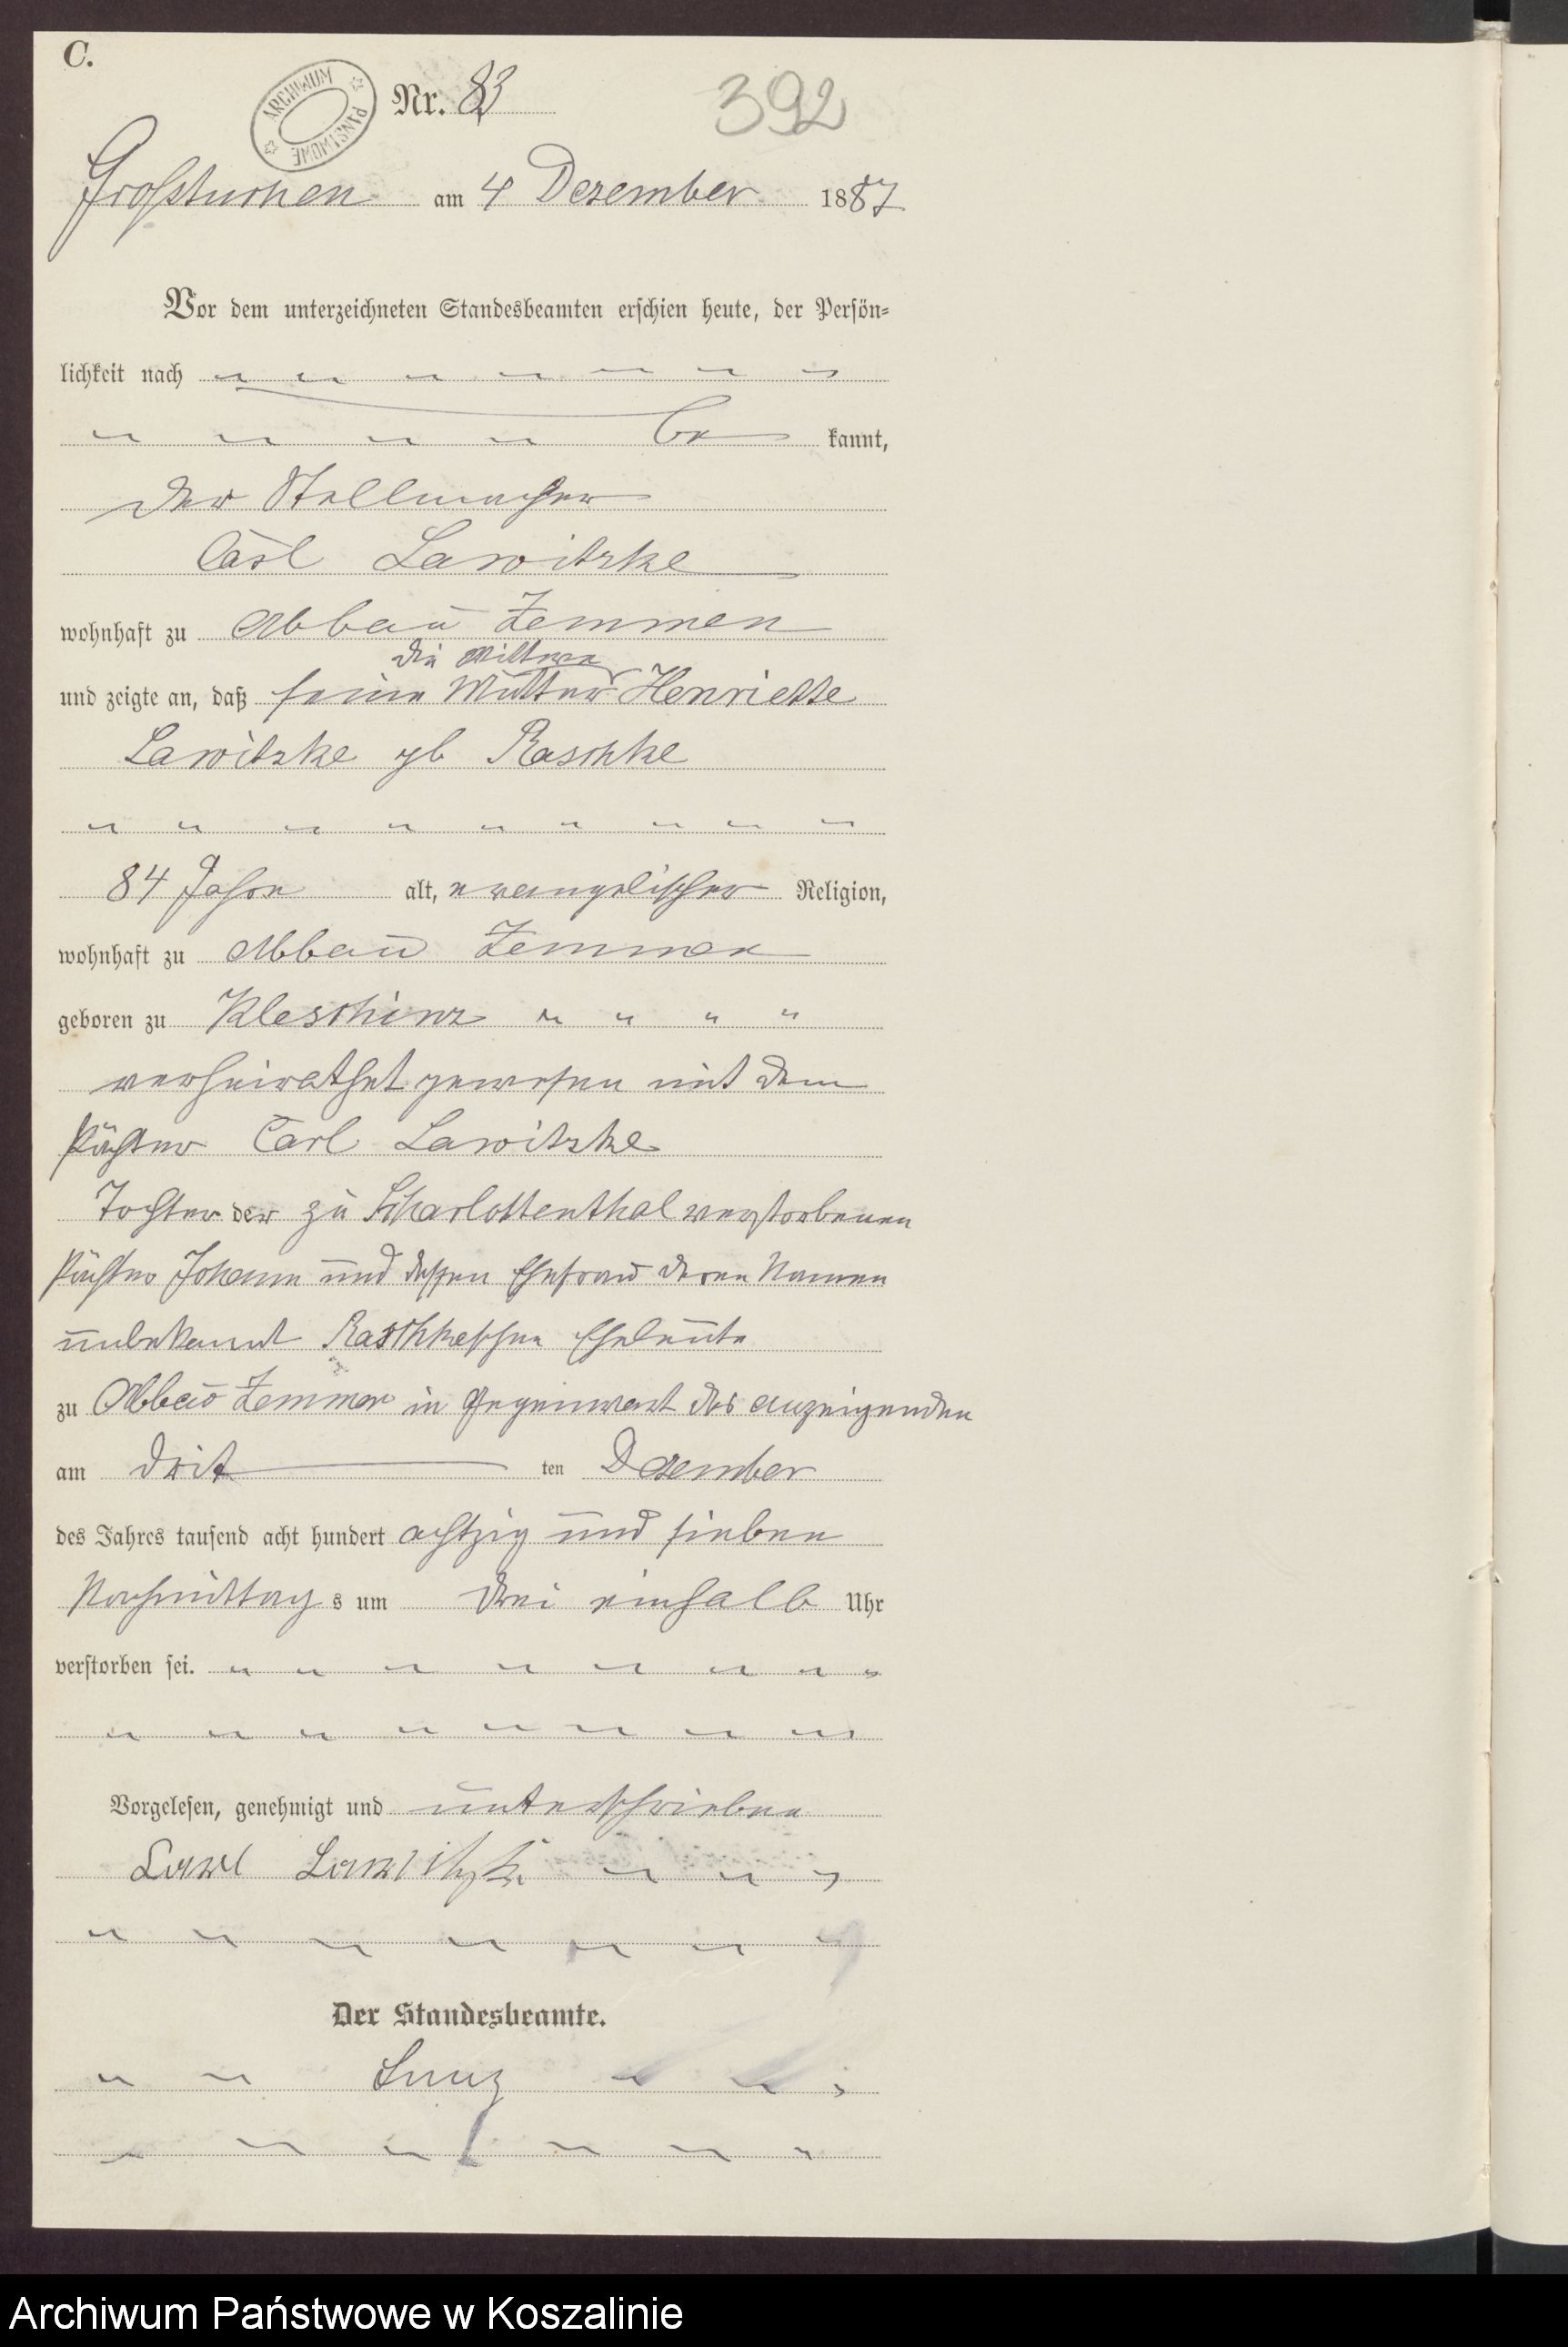 C.
ARCHIWUM PAŃSTWOWE
Nr. 83
392
Großtuchen am 4 Dezember 1887
Vor dem unterzeichneten Standesbeamten erschien heute, der Persön-
lichkeit nach
be kannt,
der Stellmacher
Carl Lawitzke
wohnhaft zu Abbau Zemmen
die Wittwe
und zeigte an, daß seine Mutter Henriette
Lawitzke gb Raschke
84 Jahre alt, evangelischer Religion,
wohnhaft zu Abbau Zemmen
geboren zu Kleschinz " " " "
verheirathet gewesen mit dem
Pächter Carl Lawitzke
Tochter der zu Scharlottenthal verstorbenen
Pächter Johann und dessen Ehefrau deren Namen
unbekannt Raschkeschen Eheleute
zu Abbau Zemmen in Gegenwart des anzeigenden
am drit ten Dezember
des Jahres tausend acht hundert achtzig und sieben
Nachmittag s um drei einhalb Uhr
verstorben sei.
Vorgelesen, genehmigt und unterschrieben
Carl Lawitzke
Der Standesbeamte.
Archiwum Państwowe w Koszalinie